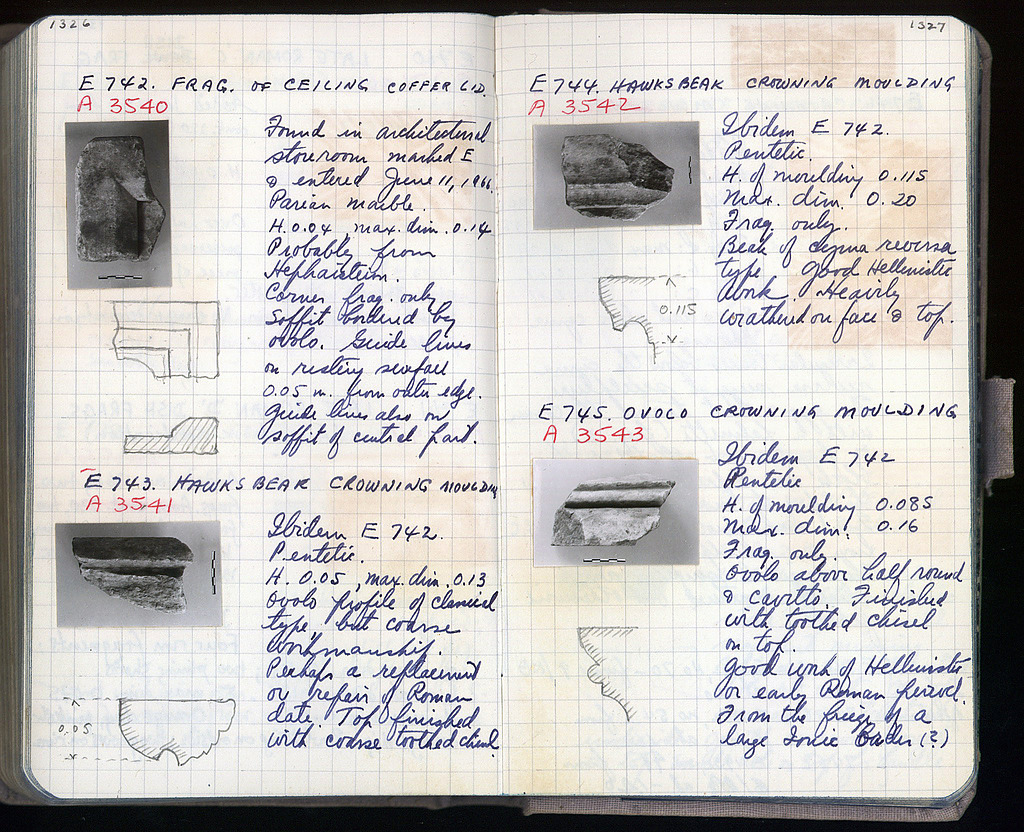 1326
E 742. FRAG. OF CEILING COFFER LID.
A 3540
Found in architectural
storeroom marked E
& entered June 11, 1966.
Parian marble.
H. 0.04, max. dim. 0.14
Probably from
Hephaisteion.
Corner frag. only
Soffit bordered by
ovolo. Guide lines
on resting surface
0.05 m. from outer edge.
Guide lines also on
soffit of central part.
E 743. HAWKSBEAK CROWNING MOULDING
A 3541
Ibidem E 742.
Pentelic.
H. 0.05, max. dim. 0.13
Ovolo profile of classical
type but coarse
workmanship.
Perhaps a replacement
or repair of Roman
date. Top finished
with coarse toothed chisel
0.05
1327
E 744. HAWKSBEAK CROWNING MOULDING
A 3542
Ibidem E 742.
Pentelic.
H. of moulding 0.115
Max. dim. 0.20
Frag. only.
Beak of cyma reversa
type. Good Hellenistic
work. Heavily
weathered on face & top.
0.115
E 745. OVOLO CROWNING MOULDING
A 3543
Ibidem E 742
Pentelic
H. of moulding 0.085
Max. dim. 0.16
Frag. only.
Ovolo above half round
& cavetto. Finished
with toothed chisel
on top.
Good work of Hellenistic
or early Roman period.
From the frieze of a
large Ionic Order (?)